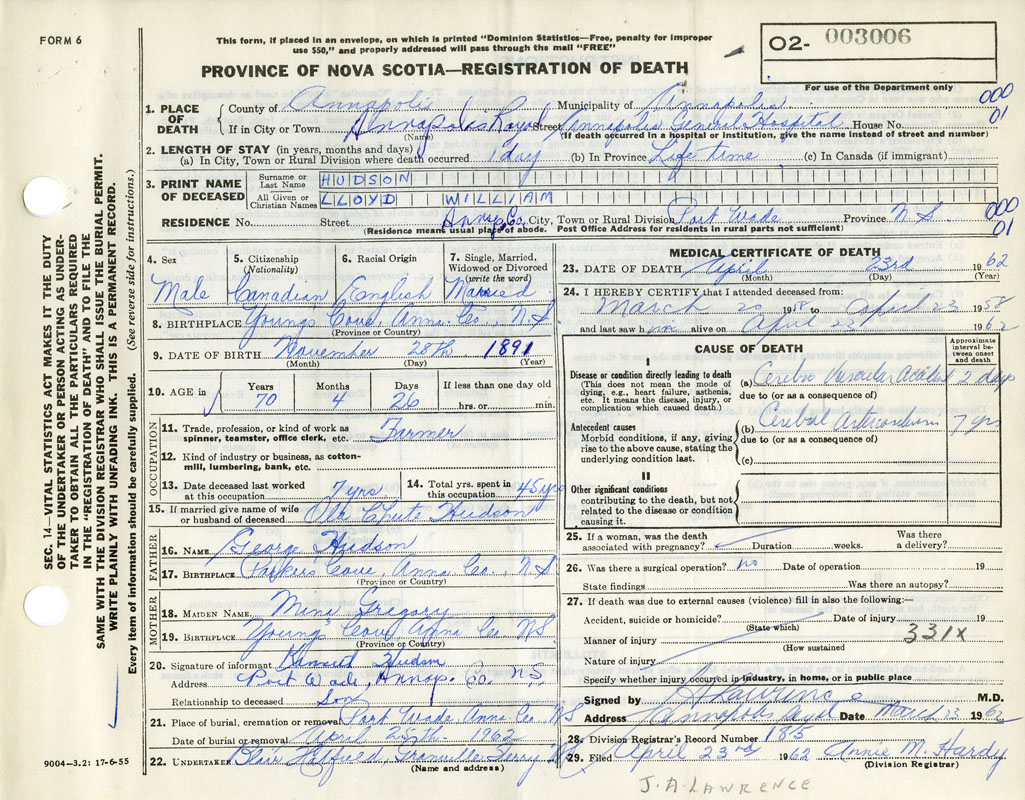 FORM 6
This form, if placed in an envelope, on which is printed "Dominion Statistics—Free, penalty for improper
use $50," and properly addressed will pass through the mail "FREE"
O2- 003006
PROVINCE OF NOVA SCOTIA—REGISTRATION OF DEATH
For use of the Department only
000
01
1. PLACE OF DEATH
County of Annapolis Municipality of Annapolis
If in City or Town Annapolis Royal Street Annapolis General Hospital House No.
(Name) (If death occurred in a hospital or institution, give the name instead of street and number)
2. LENGTH OF STAY (in years, months and days)
(a) In City, Town or Rural Division where death occurred 1 day (b) In Province Life time (c) In Canada (if immigrant)
3. PRINT NAME OF DECEASED
Surname or Last Name HUDSON
All Given or Christian Names LLOYD WILLIAM
RESIDENCE No. Street Annap Co. City, Town or Rural Division Port Wade Province N.S.
000
01
(Residence means usual place of abode. Post Office Address for residents in rural parts not sufficient)
4. Sex 5. Citizenship (Nationality) 6. Racial Origin 7. Single, Married, Widowed or Divorced (write the word)
Male Canadian English Married
8. BIRTHPLACE Youngs Cove, Anna. Co., N.S.
(Province or Country)
9. DATE OF BIRTH November 28th 1891
(Month) (Day) (Year)
10. AGE in Years 70 Months 4 Days 26 If less than one day old hrs. or min.
OCCUPATION
11. Trade, profession, or kind of work as spinner, teamster, office clerk, etc. Farmer
12. Kind of industry or business, as cotton-mill, lumbering, bank, etc.
13. Date deceased last worked at this occupation 7 yrs 14. Total yrs. spent in this occupation 45 yrs
15. If married give name of wife or husband of deceased Hudson
FATHER
16. NAME George Hudson
17. BIRTHPLACE Parkers Cove, Anna Co., N.S
(Province or Country)
MOTHER
18. MAIDEN NAME Mina Gregory
19. BIRTHPLACE Youngs Cove Anna Co N.S.
(Province or Country)
20. Signature of informant Hudson
Address Port Wade, Annap. Co. N.S.
Relationship to deceased Son
21. Place of burial, cremation or removal Port Wade, Anna Co, N.S
Date of burial or removal April 25th. 1962
22. UNDERTAKER Blair Hatfield, Granville Ferry N.S
(Name and address)
MEDICAL CERTIFICATE OF DEATH
23. DATE OF DEATH April 23rd 1962
(Month) (Day) (Year)
24. I HEREBY CERTIFY that I attended deceased from:
March 20 1958 to April 23 1958
and last saw him alive on April 23 1962
CAUSE OF DEATH
Approximate interval between onset and death
I
Disease or condition directly leading to death
(This does not mean the mode of dying, e.g., heart failure, asthenia, etc. It means the disease, injury, or complication which caused death.)
(a) Cerebro Vascular Accident 2 days
due to (or as a consequence of)
Antecedent causes
Morbid conditions, if any, giving rise to the above cause, stating the underlying condition last.
(b) Cerebral 7 yrs
due to (or as a consequence of)
(c)
II
Other significant conditions
contributing to the death, but not related to the disease or condition causing it.
25. If a woman, was the death associated with pregnancy? Duration weeks. Was there a delivery?
26. Was there a surgical operation? no Date of operation 19
State findings Was there an autopsy?
27. If death was due to external causes (violence) fill in also the following:—
Accident, suicide or homicide? Date of injury 19
(State which)
Manner of injury 331X
(How sustained
Nature of injury
Specify whether injury occurred in industry, in home, or in public place
Signed by A Lawrence M.D.
Address Annapolis Royal Date March 23 1962
28. Division Registrar's Record Number 1815
29. Filed April 23rd 1962 Annie M. Hardy
(Division Registrar)
J. A. LAWRENCE
SEC. 14—VITAL STATISTICS ACT MAKES IT THE DUTY
OF THE UNDERTAKER OR PERSON ACTING AS UNDER-
TAKER TO OBTAIN ALL THE PARTICULARS REQUIRED
IN THE "REGISTRATION OF DEATH" AND TO FILE THE
SAME WITH THE DIVISION REGISTRAR WHO SHALL ISSUE THE BURIAL PERMIT.
WRITE PLAINLY WITH UNFADING INK. THIS IS A PERMANENT RECORD.
Every item of information should be carefully supplied. (See reverse side for instructions.)
9004—3.2: 17-6-55